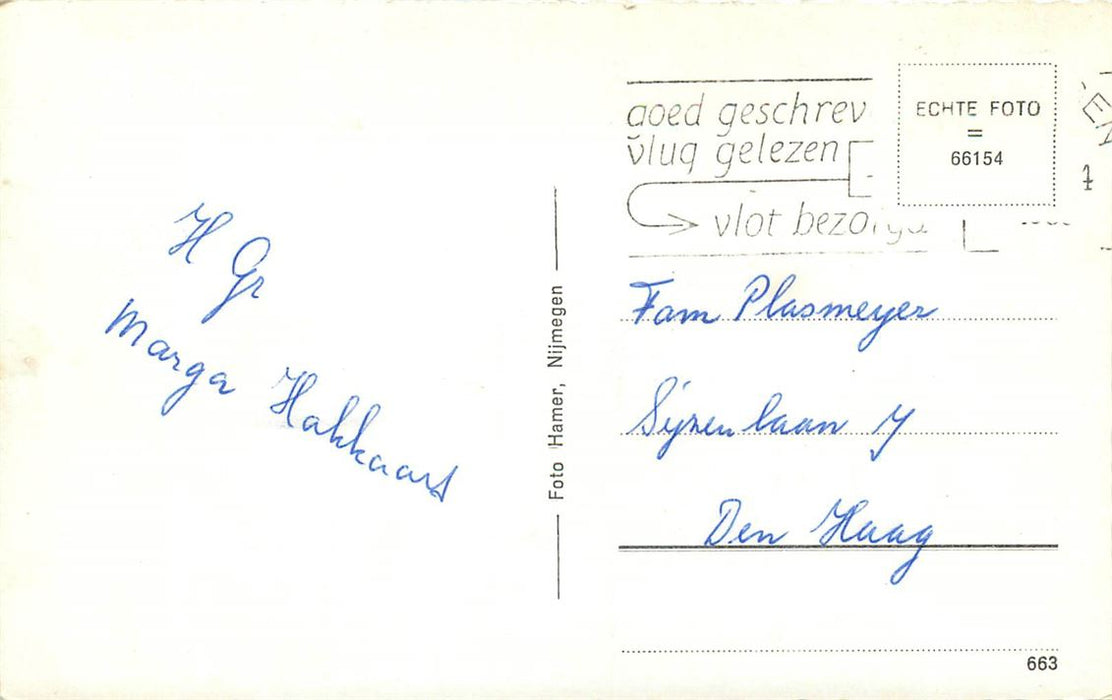 H Gr
Marga Hakkaart
Foto Hamer, Nijmegen
goed geschrev
vlug gelezen
vlot bezorgd
ECHTE FOTO
=
66154
EN
1
Fam Plasmeyer
Den Haag
663